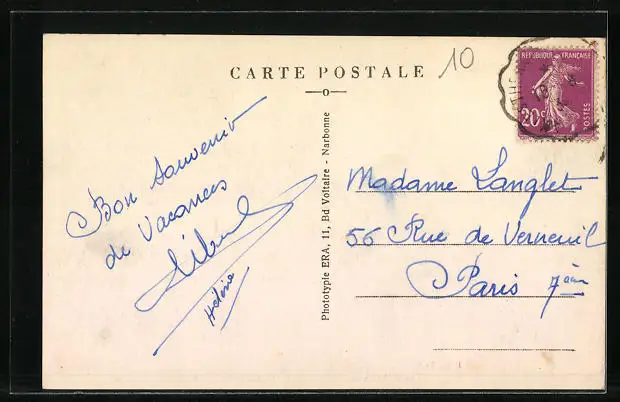 CARTE POSTALE
10
REPUBLIQUE FRANÇAISE
20c
POSTES
Bon Souvenir
de Vacances
Hélène
Phototypie ERA, 11, Bd Voltaire - Narbonne
Madame Langlet
56 Rue de Verneuil
Paris 7èm